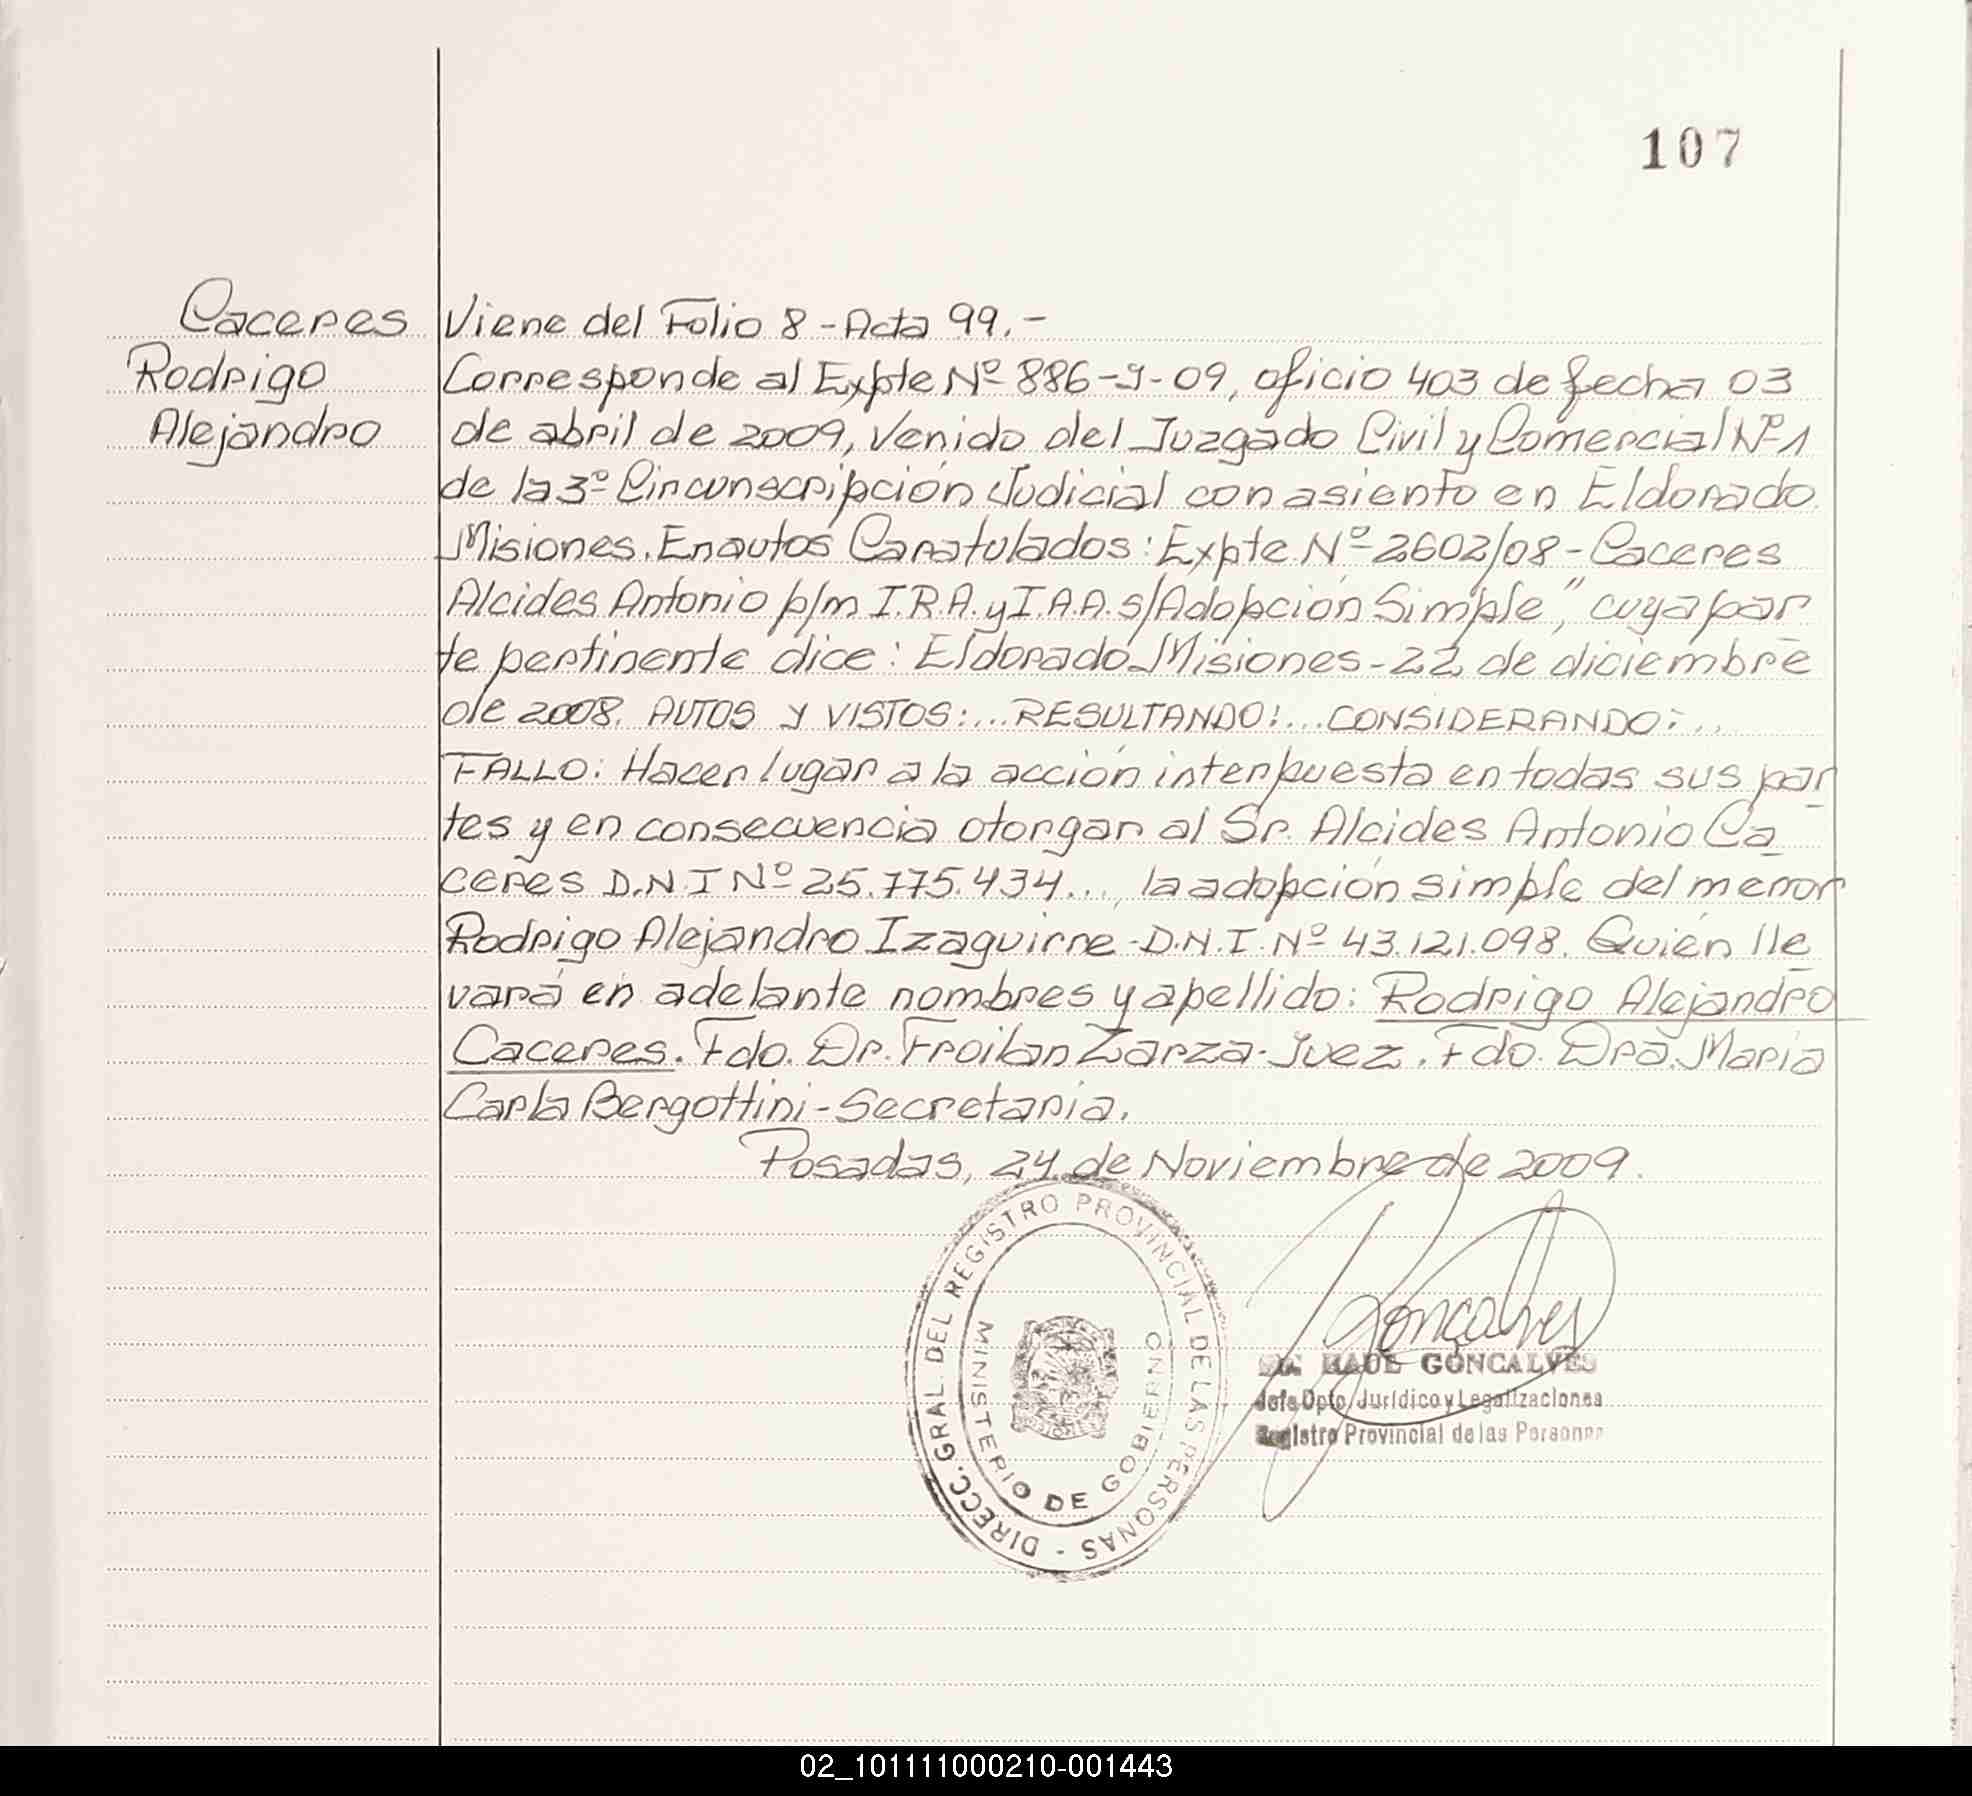 107
Caceres
Rodrigo
Alejandro
Viene del Folio 8 - Acta 99.-
Corresponde al Expte Nº 886-9-09, oficio 403 de fecha 03
de abril de 2009, Venido del Juzgado Civil y Comercial Nº 1
de la 3º Circunscripción Judicial con asiento en Eldorado
Misiones. En autos Caratulados: Expte Nº 2602/08 - Caceres
Alcides Antonio p/m I.R.A. y I.A.A. s/Adopción Simple", cuya par
te pertinente dice: Eldorado Misiones - 22 de diciembre
de 2008. AUTOS Y VISTOS:... RESULTANDO:... CONSIDERANDO:...
FALLO: Hacer lugar a la acción interpuesta en todas sus par
tes y en consecuencia otorgar al Sr. Alcides Antonio Ca
ceres D.N.I Nº 25.775.434..., la adopción simple del menor
Rodrigo Alejandro Izaguirre - D.N.I. Nº 43.121.098. Quién lle
vará en adelante nombres y apellido: Rodrigo Alejandro
Caceres. Fdo. Dr. Froilan Zarza - Juez. Fdo. Dra. Maria
Carla Bergottini - Secretaria.
Posadas, 24 de Noviembre de 2009.
DIRECC. GRAL. DEL REGISTRO PROVINCIAL DE LAS PERSONAS -
MINISTERIO DE GOBIERNO
Gonçalves
RAUL GONCALVES
Jefe Dpto. Jurídico y Legalizaciones
Registro Provincial de las Personas
02_101111000210-001443